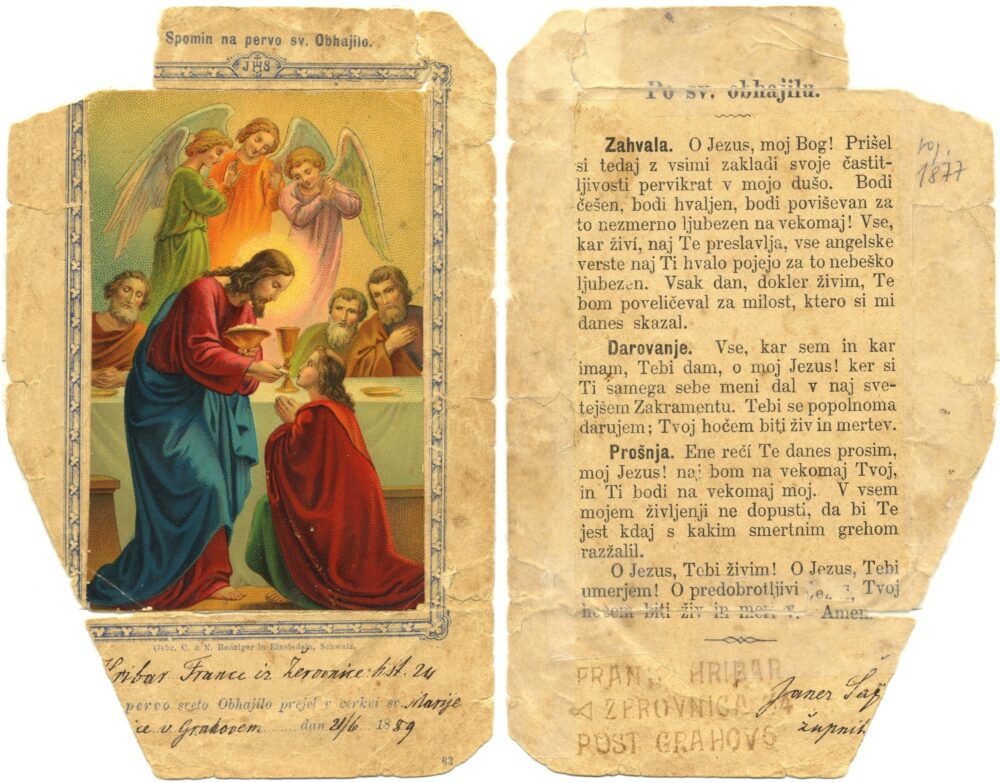 Spomin na pervo sv. Obhajilo.
JHS
Gebr. C. & N. Benziger in Einsiedeln, Schweiz.
Hribar France iz Zerovnice hst. 24
pervo sveto Obhajilo prejel v cerkvi sv. Marije
ice v Grahovem dan 21/6 1889
63
Po sv. obhajilu.
Zahvala. O Jezus, moj Bog! Prišel
si tedaj z vsimi zakladi svoje častit-
ljivosti pervikrat v mojo dušo. Bodi
češen, bodi hvaljen, bodi poviševan za
to nezmerno ljubezen na vekomaj! Vse,
kar živí, naj Te preslavlja, vse angelske
verste naj Ti hvalo pojejo za to nebeško
ljubezen. Vsak dan, dokler živim, Te
bom poveličeval za milost, ktero si mi
danes skazal.
Darovanje. Vse, kar sem in kar
imam, Tebi dam, o moj Jezus! ker si
Ti samega sebe meni dal v naj sve-
tejšem Zakramentu. Tebi se popolnoma
darujem; Tvoj hočem biti živ in mertev.
Prošnja. Ene rečí Te danes prosim,
moj Jezus! naj bom na vekomaj Tvoj,
in Ti bodi na vekomaj moj. V vsem
mojem življenji ne dopusti, da bi Te
jest kdaj s kakim smertnim grehom
razžalil.
O Jezus, Tebi živim! O Jezus, Tebi
umerjem! O predobrotljivi Jezus, Tvoj
hočem biti živ in mertv. Amen.
roj.
1877
FRANC HRIBAR
ZEROVNICA 24
POST GRAHOVO
Janez
župnik